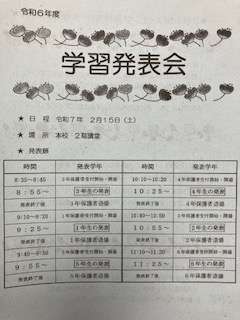 令和６年度
学習発表会
★ 日 程 令和７年 ２月１５日（土）
★ 場 所 本校 ２階講堂
★ 発表順
時間 発表学年 時間 発表学年
8:35~8:45 ３年保護者受付開始・開場 10:10~10:20 ４年保護者受付開始・開場
８：５５～ ３年生の発表 １０：２５～ ４年生の発表
発表終了後 ３年保護者退場 発表終了後 ４年保護者退場
9:10~9:20 １年保護者受付開始・開場 10:40~10:50 ２年保護者受付開始・開場
９：２５～ １年生の発表 １０：５５～ ２年生の発表
発表終了後 １年保護者退場 発表終了後 ２年保護者退場
9:40~9:50 ５年保護者受付開始・開場 11:10~11:20 ６年保護者受付開始・開場
９：５５～ ５年生の発表 １１：２５～ ６年生の発表
発表終了後 ５年保護者退場 発表終了後 ６年保護者退場